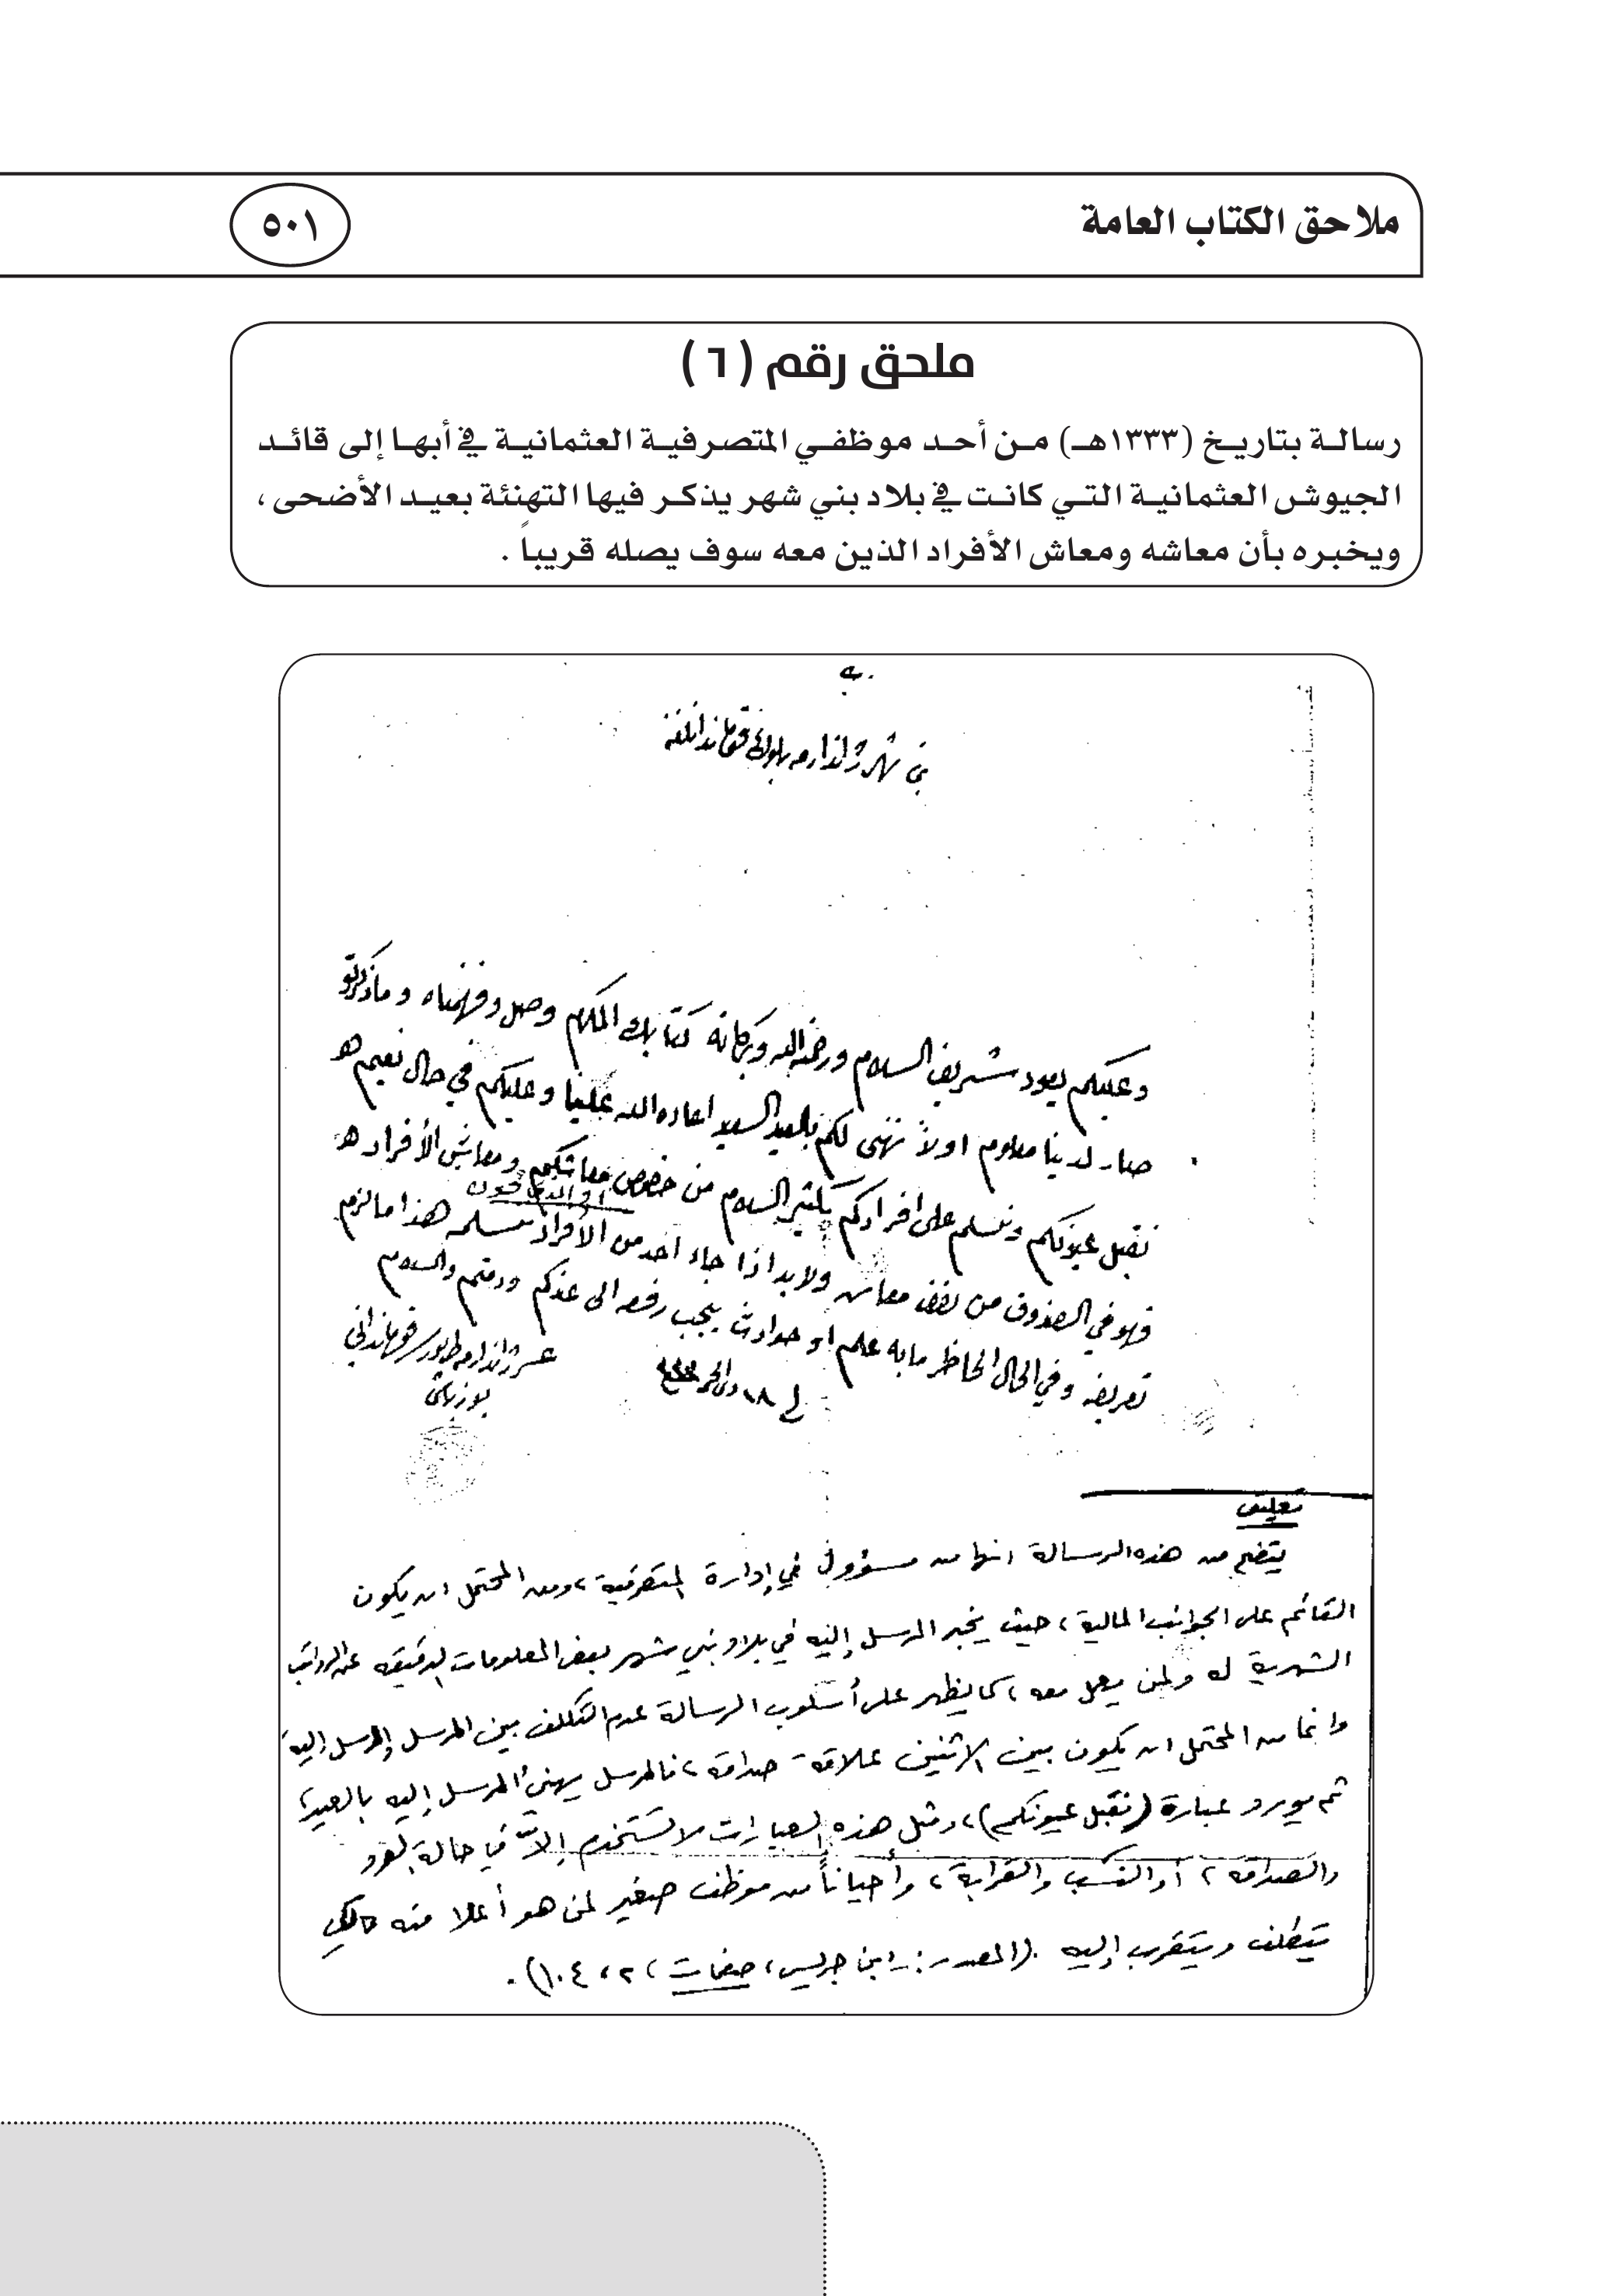 ملاحق الكتاب العامة
٥٠١
ملحق رقم ( ٦ )
رسالة بتاريخ (١٣٣٣هـ) من أحد موظفي المتصرفية العثمانية في أبها إلى قائد
الجيوش العثمانية التي كانت في بلاد بني شهر يذكر فيها التهنئة بعيد الأضحى ،
ويخبره بأن معاشه ومعاش الأفراد الذين معه سوف يصله قريباً .
بني شهر ژاندارمه بلوك
وعليكم يعود شريف السلام ورحمة الله وبركاته كتابك المكرم وصل وفهمناه وما ذكرتو
صار لدينا معلوم اولاً نهني لكم بالعيد السعيد اعاده الله علينا وعليكم في حال نعيم هو
نقبل عيونكم ونسلم على افرادكم بكثير السلام من خصوص معاشكم ومعاش الأفراد هو
فهو في الصندوق من نقض معاش ولا بد اذا جاء احد من الأفراد نسلمه هذا ما لزم
تعريفه وفي الحال الحاظر ما به علم او حوادث يجب رفعه الى عندكم ودمتم والسلام
في ١٨ ذي الحجة
ژاندارمه طابور قومانداني
يوزباشي
تعليق
يتضح من هذه الرسالة انها من مسؤول في إدارة المتصرفية ، ومن المحتمل ان يكون
القائم على الجوانب المالية ، حيث يخبر المرسل إليه في بلاد بني شهر بعض المعلومات الدقيقة عن الرواتب
الشهرية له ولمن يعمل معه ، كما يظهر على أسلوب الرسالة عدم التكلف بين المرسل والمرسل إليه
وانما من المحتمل ان يكون بين الاثنين علاقة صداقة ، فالمرسل يهنئ المرسل إليه بالعيد ،
ثم يورد عبارة (نقبل عيونكم) ، ومثل هذه العبارات لا تستخدم إلاّ في حالة الود
والصداقة ، أو النسب والقرابة ، وأحياناً من موظف صغير لمن هو أعلا منه لكي
يتطلف ويتقرب إليه . (المصدر : ابن جريس ، صفحات ، ٢ ، ١٠٤) .